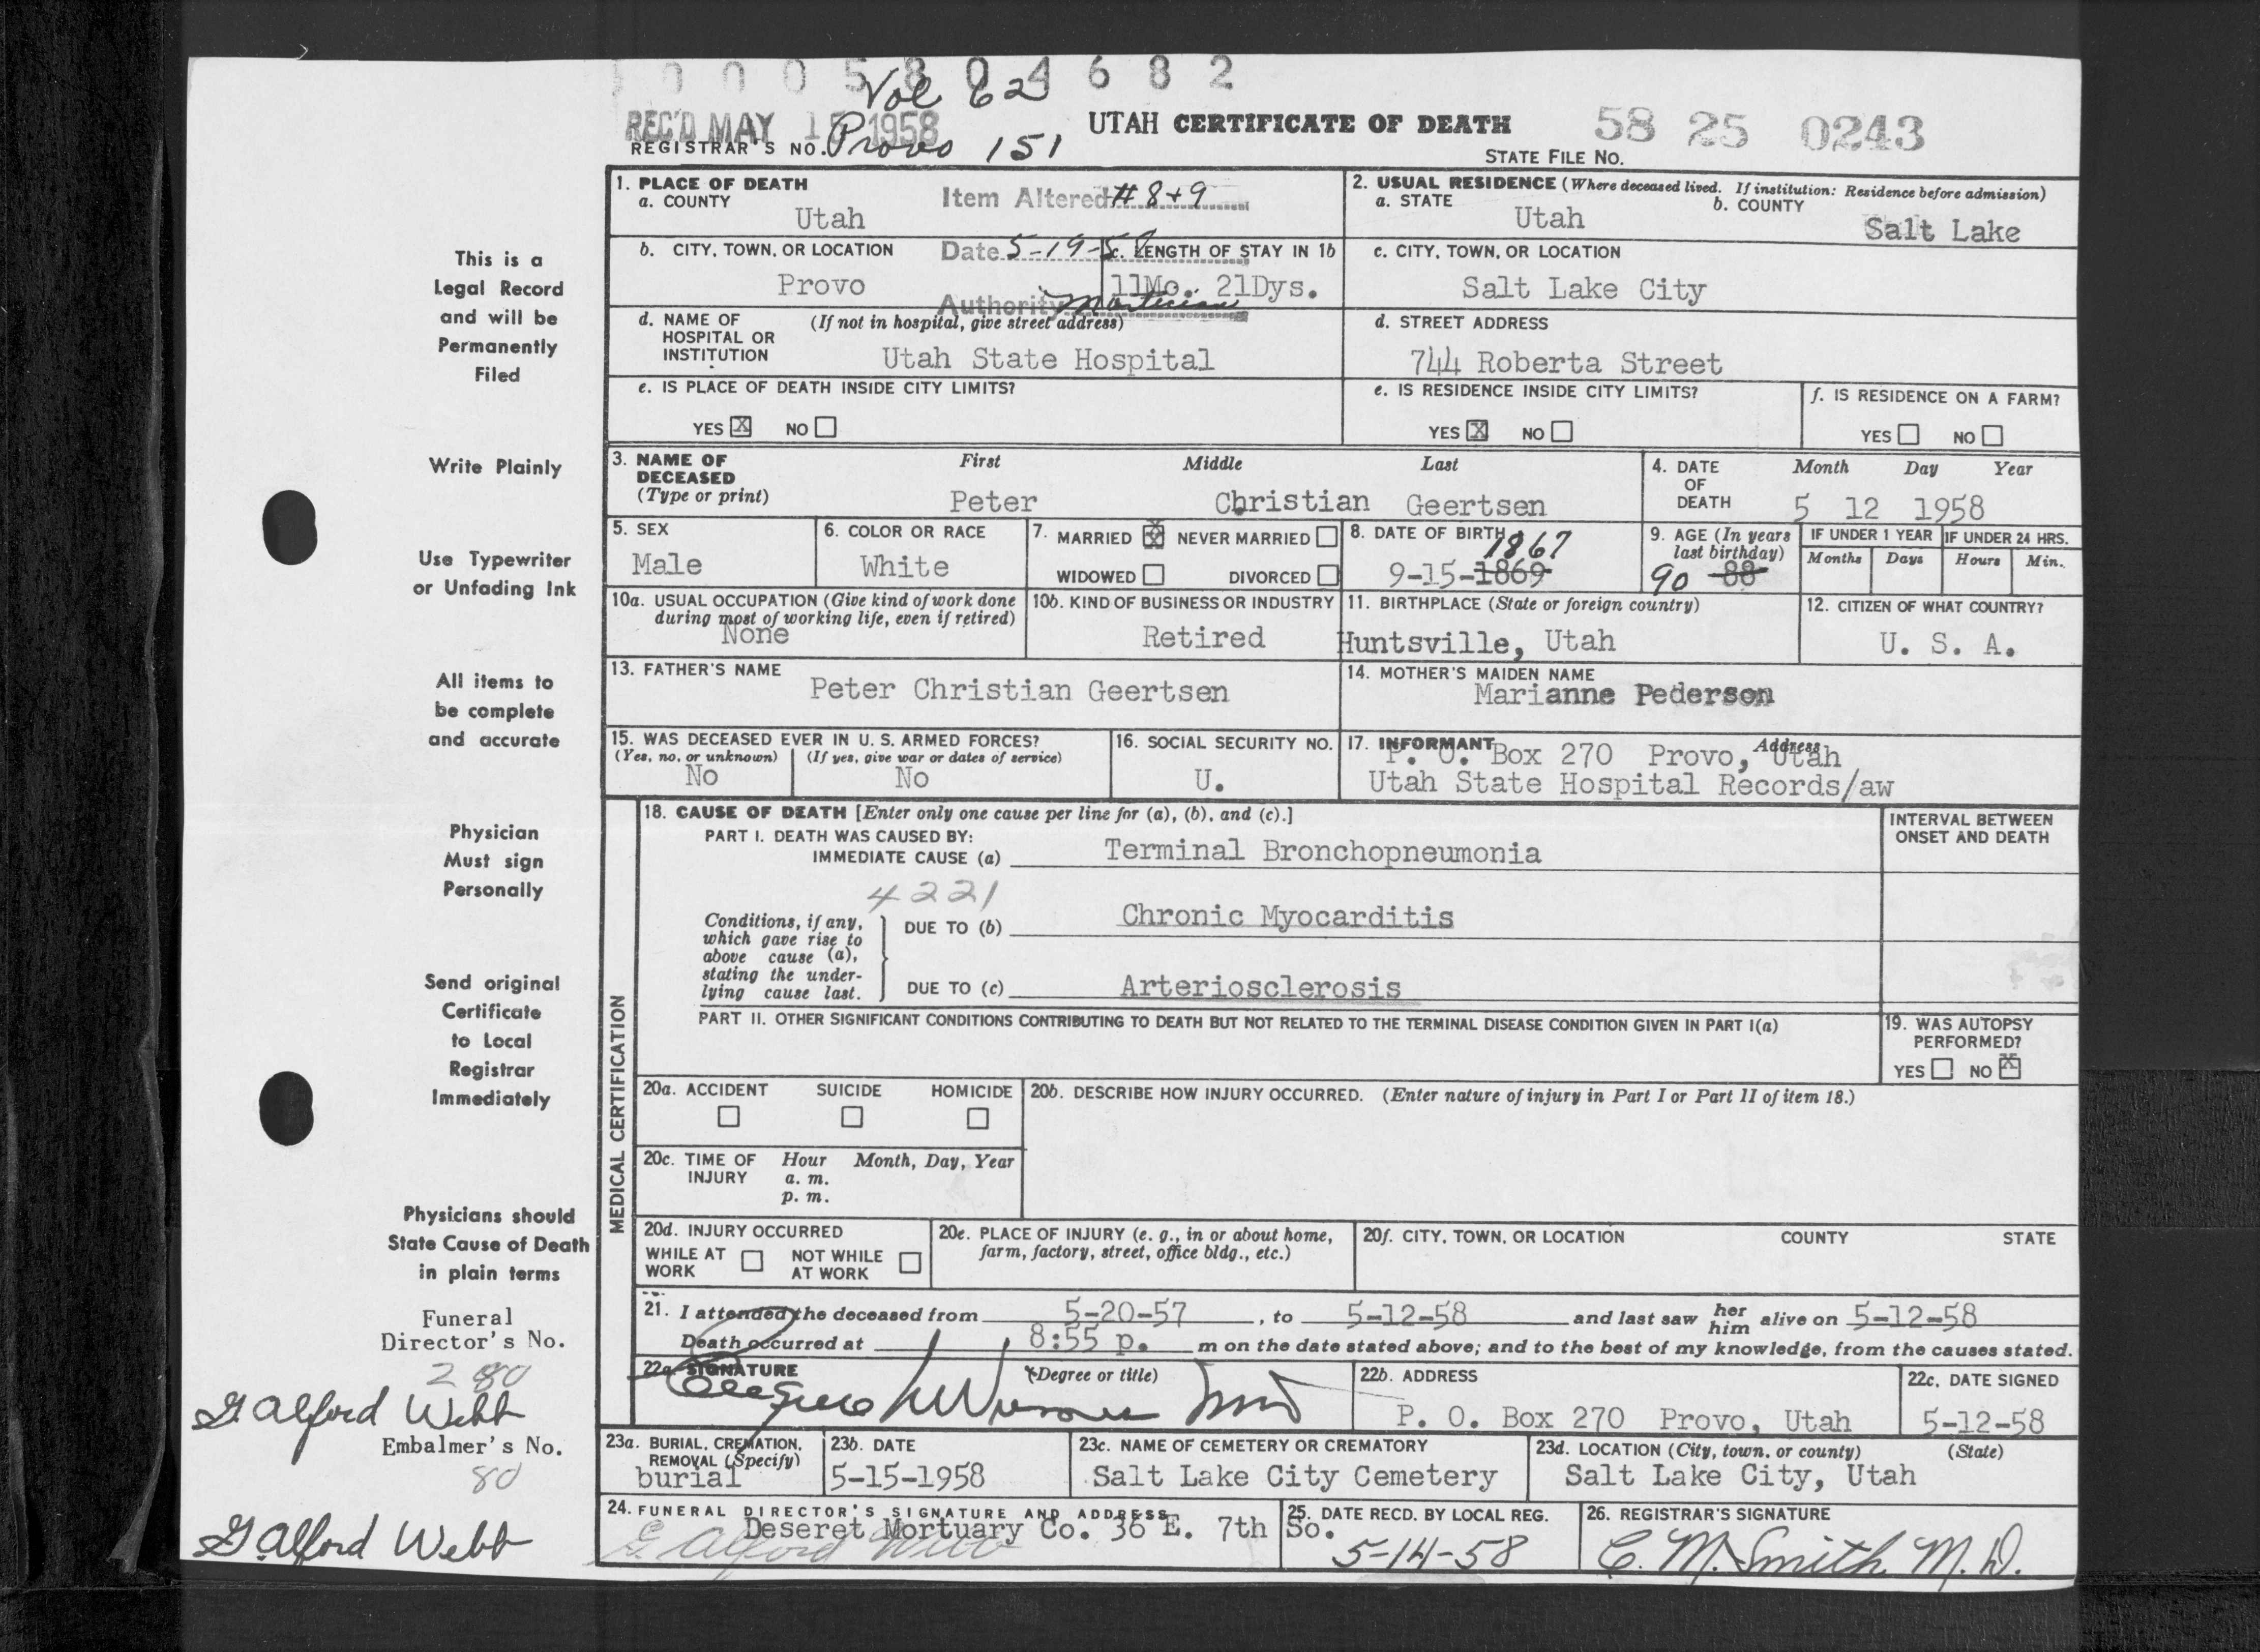 0 0 0 5 8 0 4 6 8 2
Vol 62
REC'D MAY 15 1958
UTAH CERTIFICATE OF DEATH
58 25 0243
REGISTRAR'S NO. Provo 151
STATE FILE No.
1. PLACE OF DEATH
a. COUNTY
Utah
Item Altered #8+9
2. USUAL RESIDENCE (Where deceased lived. If institution: Residence before admission)
a. STATE
Utah
b. COUNTY
Salt Lake
b. CITY, TOWN, OR LOCATION
Provo
Date 5-19-58
c. LENGTH OF STAY IN 1b
11Mo. 21Dys.
Authority Mortician
c. CITY, TOWN, OR LOCATION
Salt Lake City
d. NAME OF HOSPITAL OR INSTITUTION
(If not in hospital, give street address)
Utah State Hospital
d. STREET ADDRESS
744 Roberta Street
e. IS PLACE OF DEATH INSIDE CITY LIMITS?
YES X NO
e. IS RESIDENCE INSIDE CITY LIMITS?
YES X NO
f. IS RESIDENCE ON A FARM?
YES NO
3. NAME OF DECEASED
(Type or print)
First Middle Last
Peter Christian Geertsen
4. DATE OF DEATH
Month Day Year
5 12 1958
5. SEX
Male
6. COLOR OR RACE
White
7. MARRIED X NEVER MARRIED
WIDOWED DIVORCED
8. DATE OF BIRTH
1867
9-15-1869
9. AGE (In years last birthday)
90 88
IF UNDER 1 YEAR
Months Days
IF UNDER 24 HRS.
Hours Min.
10a. USUAL OCCUPATION (Give kind of work done during most of working life, even if retired)
None
10b. KIND OF BUSINESS OR INDUSTRY
Retired
11. BIRTHPLACE (State or foreign country)
Huntsville, Utah
12. CITIZEN OF WHAT COUNTRY?
U. S. A.
13. FATHER'S NAME
Peter Christian Geertsen
14. MOTHER'S MAIDEN NAME
Marianne Pederson
15. WAS DECEASED EVER IN U. S. ARMED FORCES?
(Yes, no, or unknown) (If yes, give war or dates of service)
No No
16. SOCIAL SECURITY NO.
U.
17. INFORMANT Address
P. O. Box 270 Provo, Utah
Utah State Hospital Records/aw
MEDICAL CERTIFICATION
18. CAUSE OF DEATH [Enter only one cause per line for (a), (b), and (c).]
INTERVAL BETWEEN ONSET AND DEATH
PART I. DEATH WAS CAUSED BY:
IMMEDIATE CAUSE (a) Terminal Bronchopneumonia
4221
Conditions, if any, which gave rise to above cause (a), stating the underlying cause last.
DUE TO (b) Chronic Myocarditis
DUE TO (c) Arteriosclerosis
PART II. OTHER SIGNIFICANT CONDITIONS CONTRIBUTING TO DEATH BUT NOT RELATED TO THE TERMINAL DISEASE CONDITION GIVEN IN PART I(a)
19. WAS AUTOPSY PERFORMED?
YES NO X
20a. ACCIDENT SUICIDE HOMICIDE
20b. DESCRIBE HOW INJURY OCCURRED. (Enter nature of injury in Part I or Part II of item 18.)
20c. TIME OF INJURY
Hour Month, Day, Year
a. m.
p. m.
20d. INJURY OCCURRED
WHILE AT WORK NOT WHILE AT WORK
20e. PLACE OF INJURY (e. g., in or about home, farm, factory, street, office bldg., etc.)
20f. CITY, TOWN, OR LOCATION COUNTY STATE
21. I attended the deceased from 5-20-57, to 5-12-58 and last saw her him alive on 5-12-58
Death occurred at 8:55 p. m on the date stated above; and to the best of my knowledge, from the causes stated.
22a. SIGNATURE (Degree or title)
22b. ADDRESS
P. O. Box 270 Provo, Utah
22c. DATE SIGNED
5-12-58
23a. BURIAL, CREMATION, REMOVAL (Specify)
burial
23b. DATE
5-15-1958
23c. NAME OF CEMETERY OR CREMATORY
Salt Lake City Cemetery
23d. LOCATION (City, town, or county) (State)
Salt Lake City, Utah
24. FUNERAL DIRECTOR'S SIGNATURE AND ADDRESS
Deseret Mortuary Co. 36 E. 7th So.
G Alford Webb
25. DATE RECD. BY LOCAL REG.
5-14-58
26. REGISTRAR'S SIGNATURE
C. M. Smith M. D.
This is a
Legal Record
and will be
Permanently
Filed
Write Plainly
Use Typewriter
or Unfading Ink
All items to
be complete
and accurate
Physician
Must sign
Personally
Send original
Certificate
to Local
Registrar
Immediately
Physicians should
State Cause of Death
in plain terms
Funeral
Director's No.
280
G Alford Webb
Embalmer's No.
80
G Alford Webb